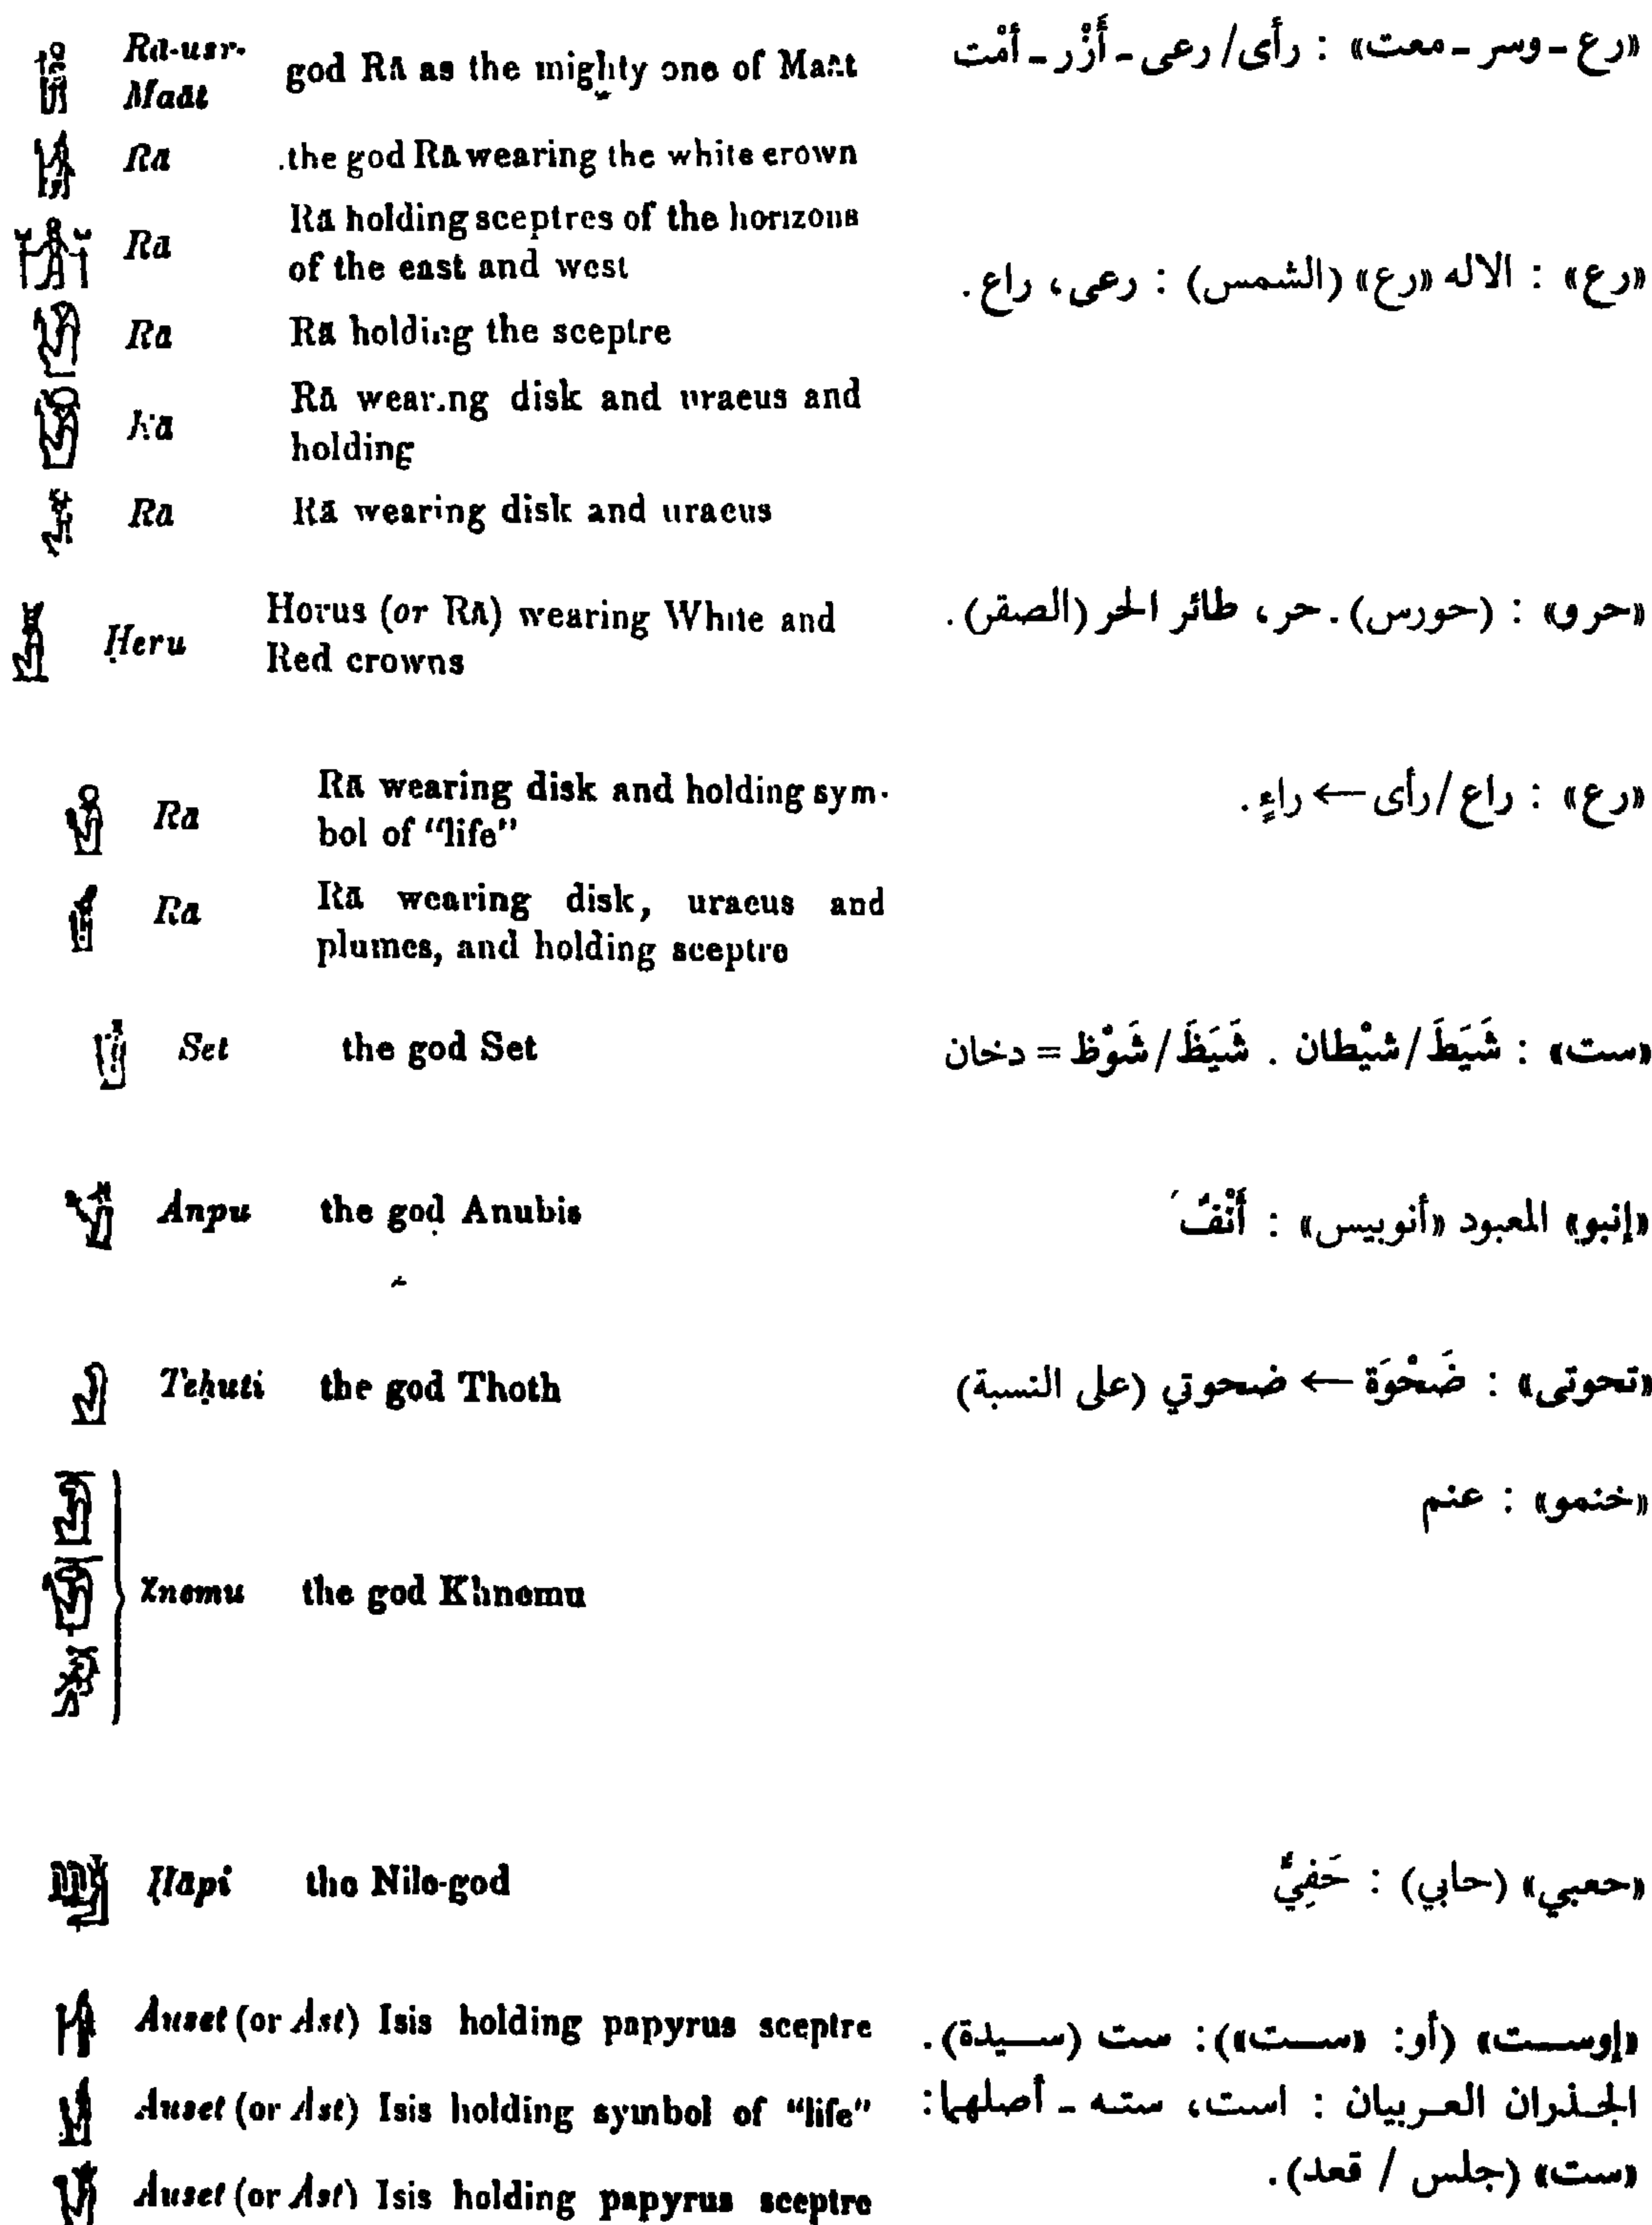 Rā-usr- god RĀ as the mighty one of Maāt «رع - وسر - معت» : رأى/ رعى - أَزْر - أمْت
Maāt
Rā .the god RĀ wearing the white crown
Rā Rā holding sceptres of the horizons
of the east and west «رع» : الاله «رع» (الشمس) : رعى، راع .
Rā Rā holding the sceptre
Rā Rā wearing disk and uraeus and
holding
Rā Rā wearing disk and uraeus
Ḥeru Horus (or RĀ) wearing White and «حرو» : (حورس) . حر، طائر الحر (الصقر) .
Red crowns
Rā Rā wearing disk and holding sym- «رع» : راع /رأى ← راءٍ .
bol of “life”
Rā Rā wearing disk, uraeus and
plumes, and holding sceptre
Set the god Set «ست» : شَيَطَ/ شيْطان . شَيَظَ/ شَوْظ = دخان
Ȧnpu the god Anubis «إنبو» المعبود «أنوبيس» : أَنْفٌ
Teḥuti the god Thoth «تحوتى» : ضَحْوَة ← ضحوتي (على النسبة)
«خنمو» : عنم
χnemu the god Khnemu
Ḥāpi the Nile-god «حعبي» (حابي) : حَفِيٌّ
Ȧuset (or Ȧst) Isis holding papyrus sceptre «إوست» (أو: «ست»): ست (سيدة) .
Ȧuset (or Ȧst) Isis holding symbol of “life” الجذران العربيان : است، سته - أصلهما:
Ȧuset (or Ȧst) Isis holding papyrus sceptre «ست» (جلس / قعد) .